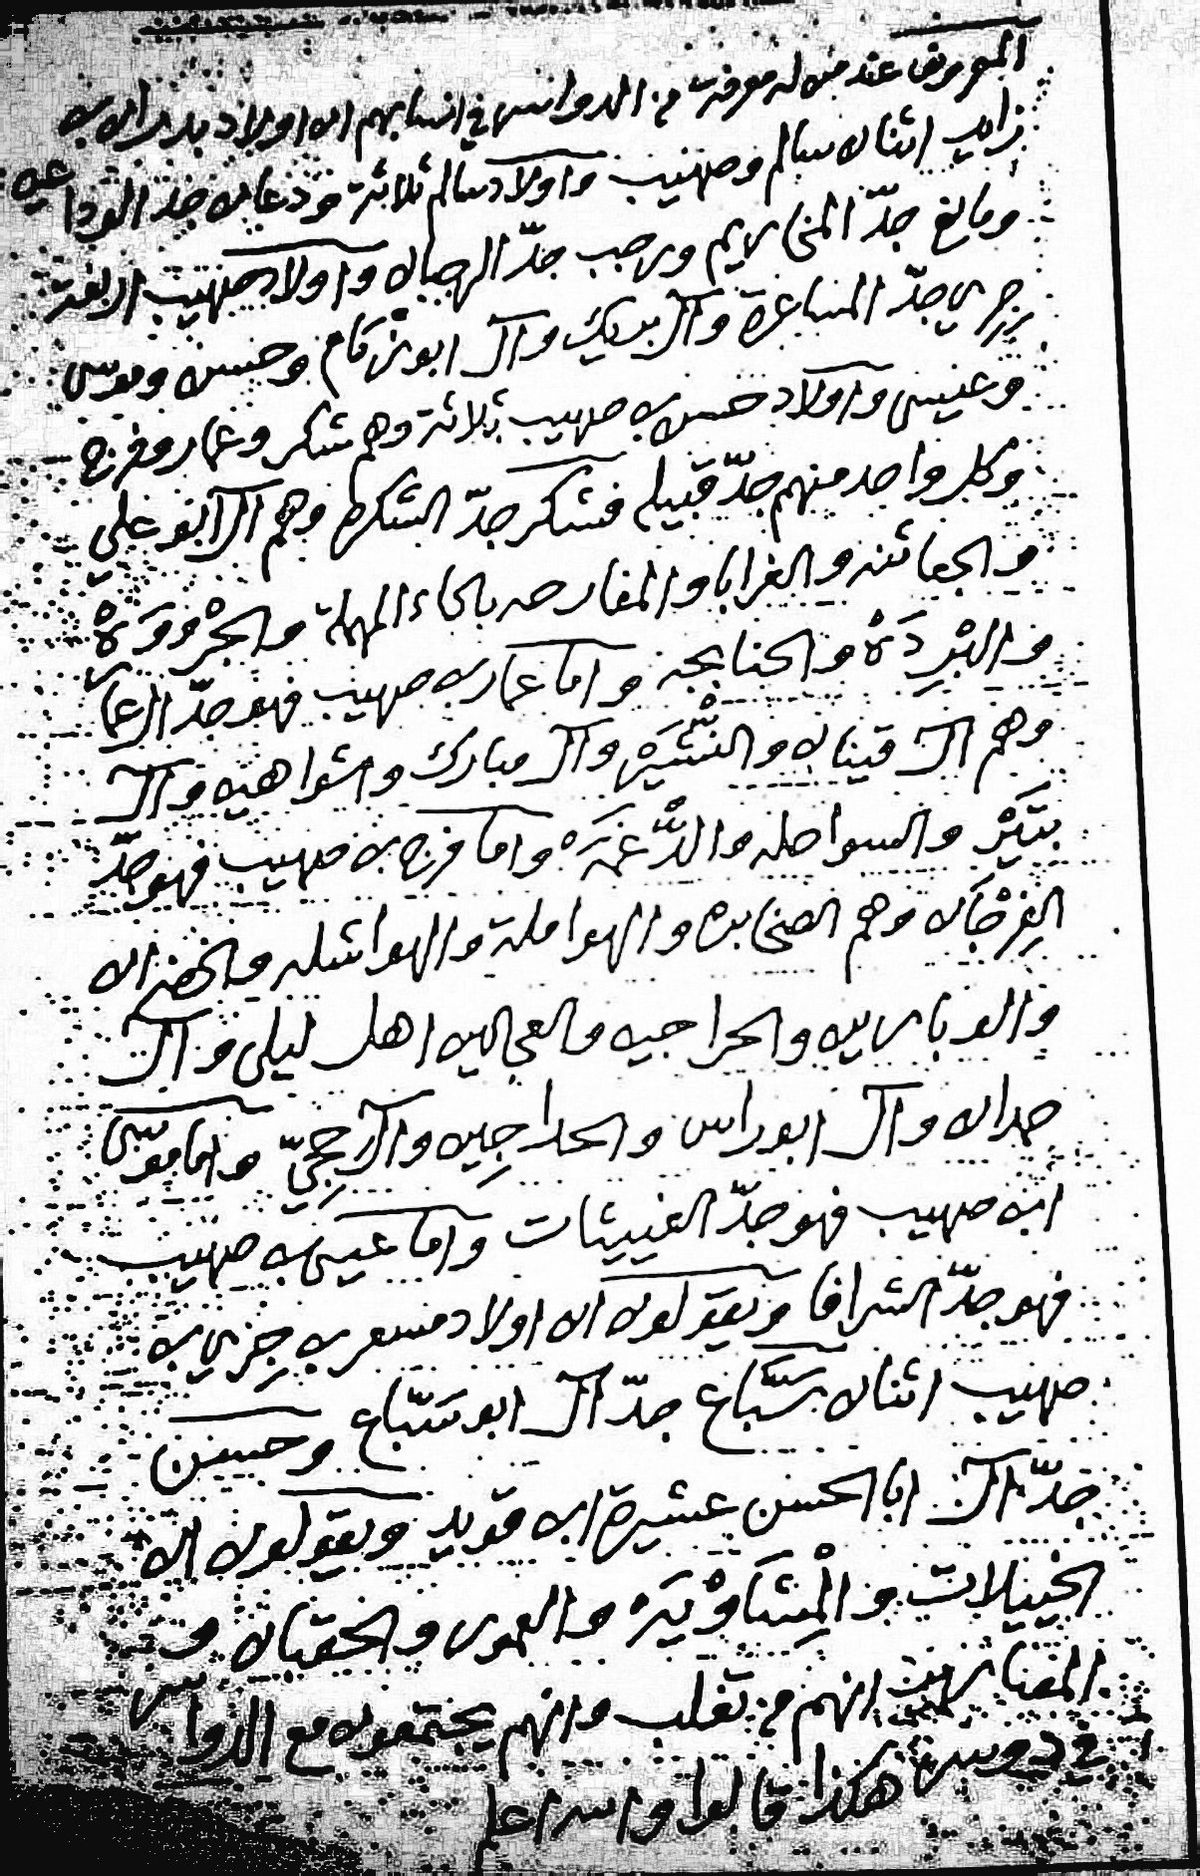 المعروف عند من له معرفة من الدواسر في انسابهم ان اولاد بدران بن
زايد اثنان سالم وصهيب واولاد سالم ثلاثة ودعان جد الوداعين
ومانع جدّ المخاريم ورجب جدّ الرجبان واولاد صهيب اربعة
جري جدّ المساعرة وآل بريك وآل ابو زكام وحسن وموسى
وعيسى واولاد حسن بن صهيب ثلاثة وهم شكر وعمار وفرج
وكل واحد منهم جدّ قبيلة فشكر جدّ الشكره وهم آل ابو علي
والجعاثنه والغرابا والمفارحه بالحاء المهملة والجرفوره
والبردَة والحنابجه واما عمار بن صهيب فهو جدّ آل عمار
وهم آل قينان والنتشَره وآل مبارك والشواهين وآل
بتير والسواحله والدّغمه واما فرج بن صهيب فهو جدّ
الفرجان وهم الصخابره والهواملة والهواشله والخضران
والوبارين والحراجين والعجالين اهل ليلى وآل
حمدان وآل ابو راس والحداجين وآل حجيّ واما موسى
ابن صهيب فهو جدّ الغييثات واما عيسى بن صهيب
فهو جدّ الشرافا ويقولون ان اولاد مسعر بن جري بن
صهيب اثنان سَبَّاع جدّ آل ابو سَبّاع وحسين
جدّ آل ابا الحسن عشيرة ابن قويد ويقولون ان
الخييلات والمشَاوْيَه والعمور والحقبان و
انهم من تغلب وانهم يجتمعون مع الدواسر
في دوسر هكذا قالوا والله اعلم